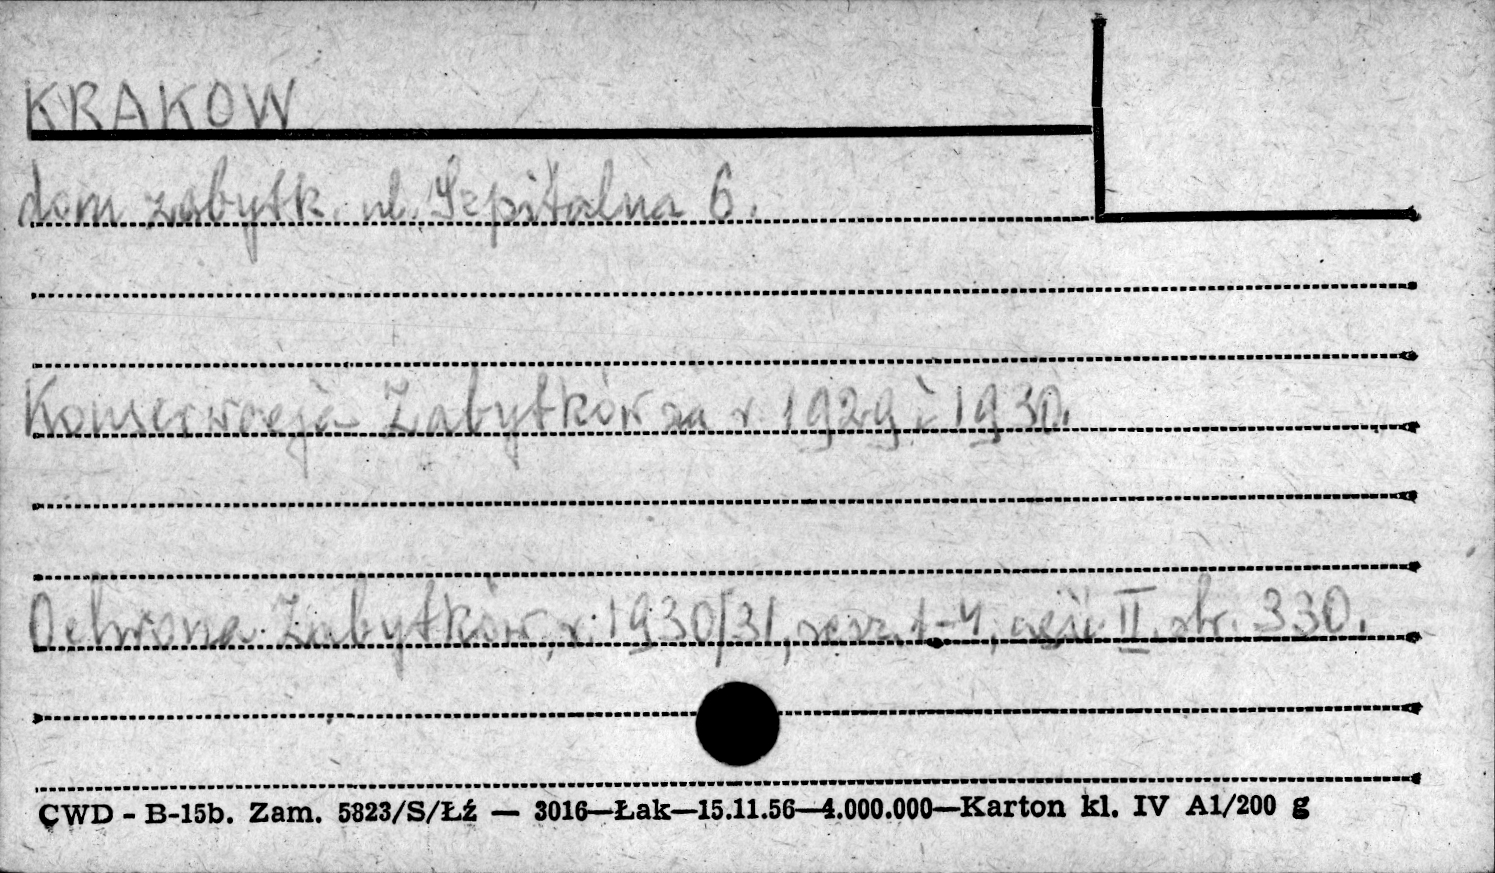 KRAKOW
dom zabytk. ul. Szpitalna 6.
Konserwacja Zabytków za r. 1929 i 1930.
Ochrona Zabytków, r. 1930/31, zesz. 1-4, część II, str. 330.
CWD - B-15b. Zam. 5823/S/Łź — 3016—Łak—15.11.56—4.000.000—Karton kl. IV A1/200 g